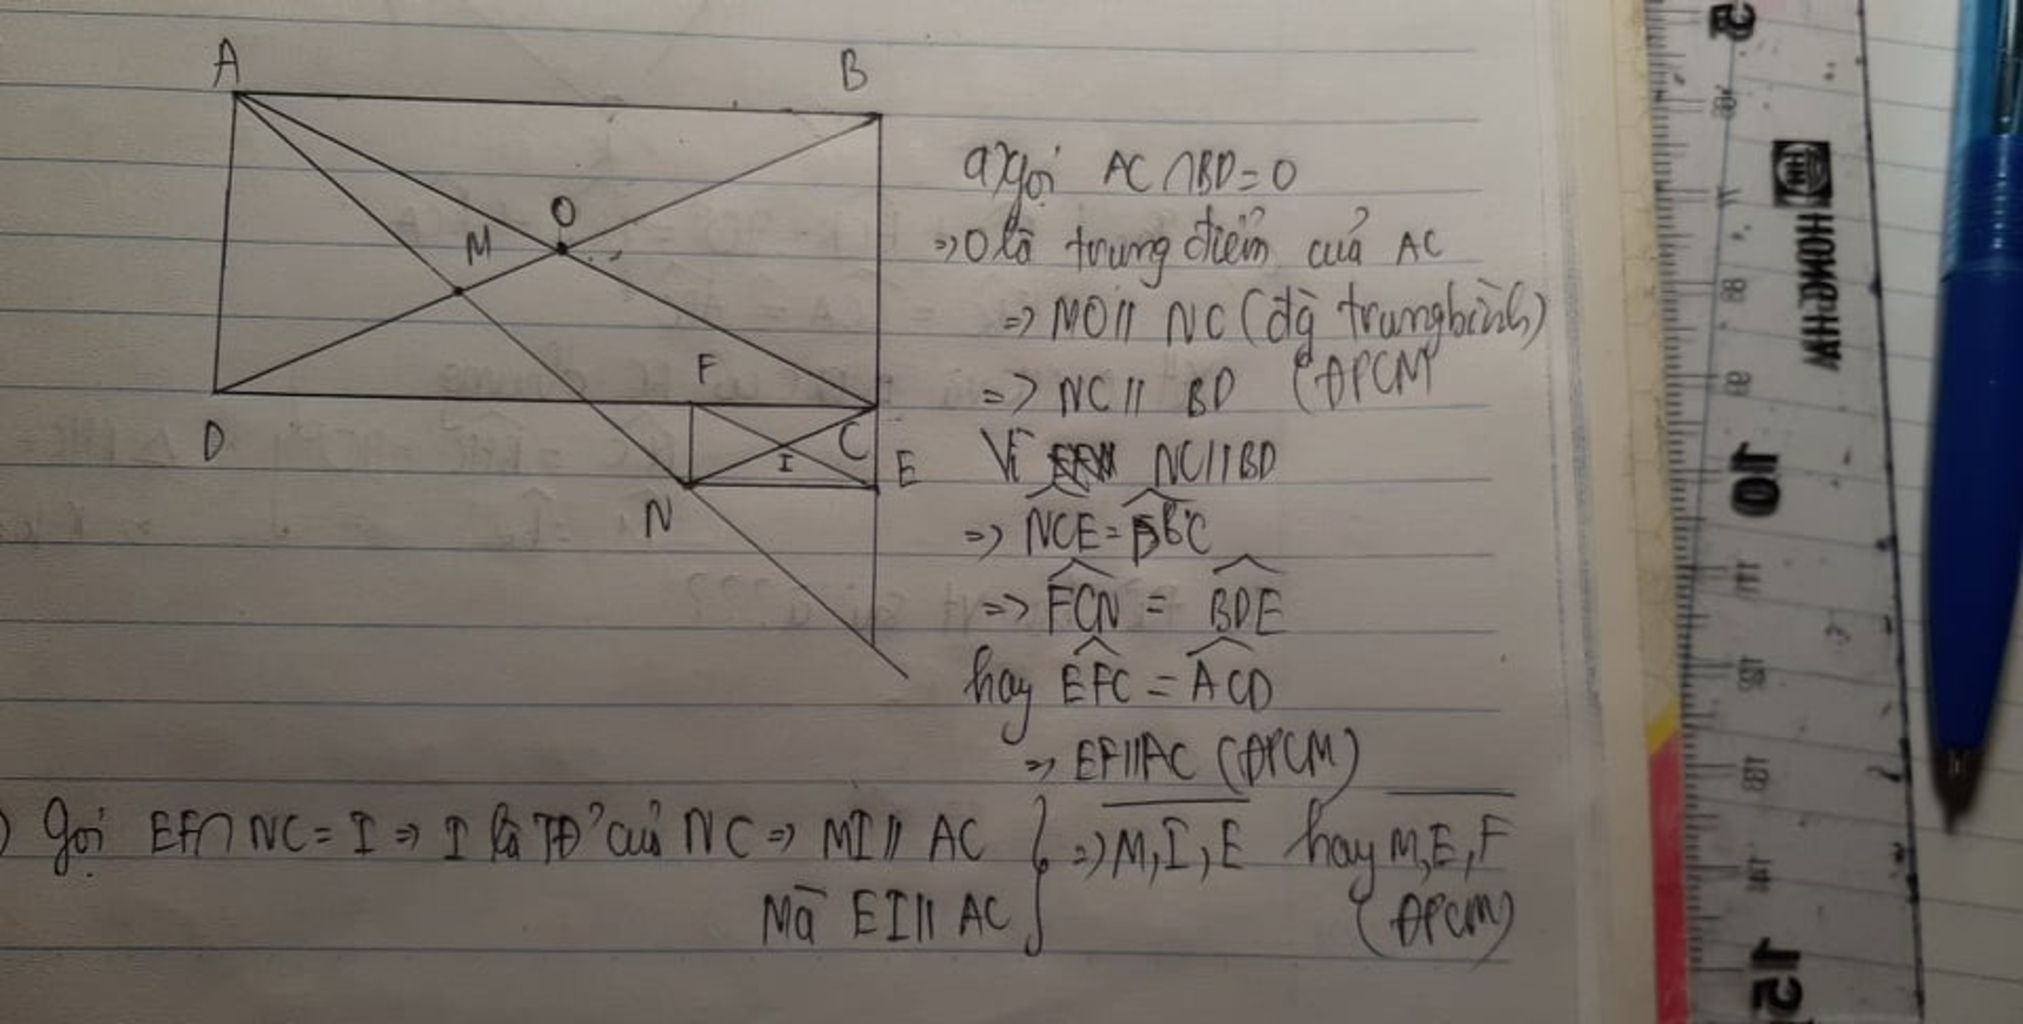 A
B
O
M
F
D
C
I
E
N
a) gọi AC ∩ BD = O
=> O là trung điểm của AC
=> MO // NC (đg trung bình)
=> NC // BD (ĐPCM
Vì NC // BD
=> NCE = DBC
=> FCN = BDE
hay EFC = ACD
=> EF // AC (ĐPCM)
) Gọi EF ∩ NC = I => I là TĐ' của NC => MI // AC } => M, I, E hay M, E, F
Mà EI // AC (ĐPCM)
HONGHW
10
15